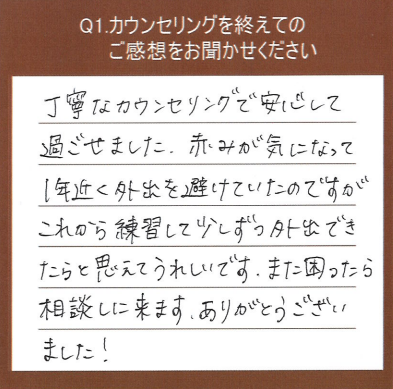 Q1.カウンセリングを終えての
ご感想をお聞かせください
丁寧なカウンセリングで安心して
過ごせました. 赤みが気になって
1年近く外出を避けていたのですが
これから練習して少しずつ外出でき
たらと思えてうれしいです. また困ったら
相談しに来ます. ありがとうござい
ました!